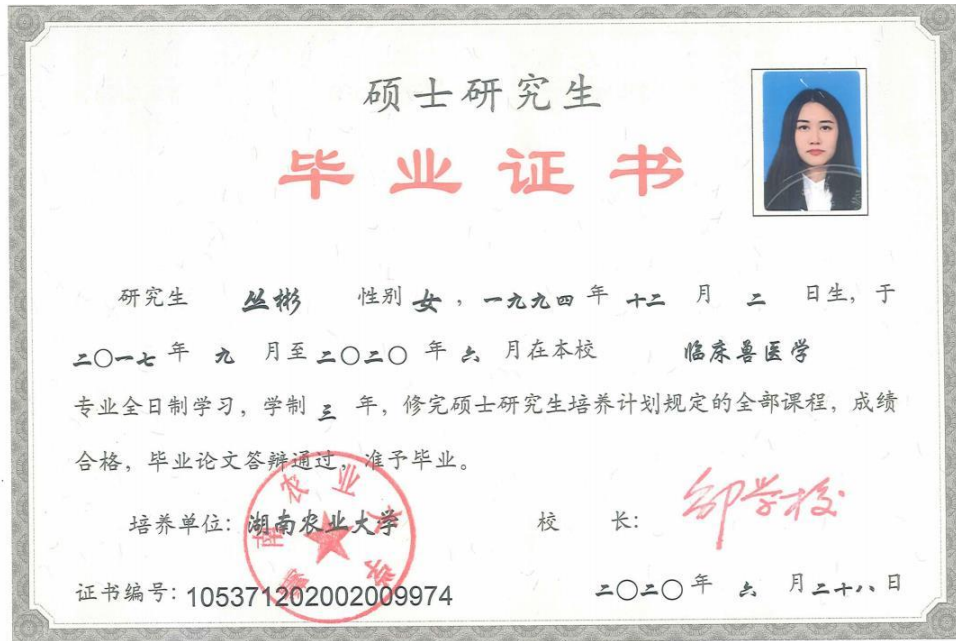 硕士研究生
毕业证书
研究生 丛彬 性别 女，一九九四 年 十二 月 二 日生，于
二〇一七 年 九 月至 二〇二〇 年 六 月在本校 临床兽医学
专业全日制学习，学制 三 年，修完硕士研究生培养计划规定的全部课程，成绩
合格，毕业论文答辩通过，准予毕业。
培养单位：湖南农业大学 校 长：邹学校
湖南农业大学
证书编号：105371202002009974 二〇二〇 年 六 月 二十八 日